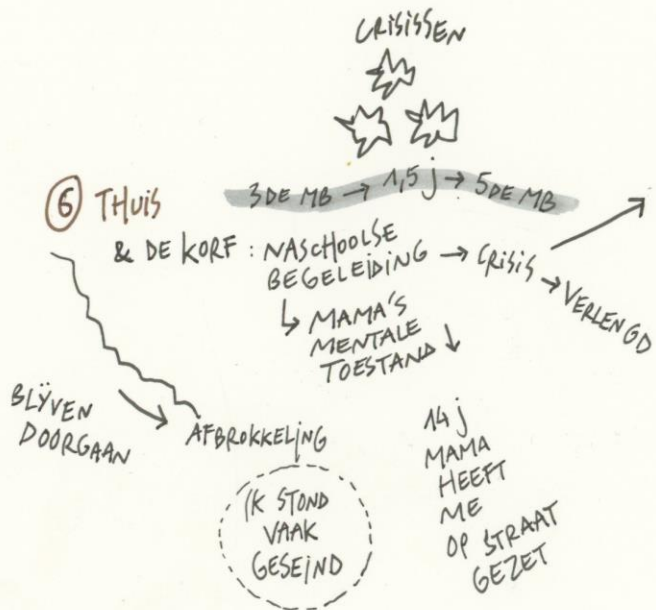 CRISISSEN
3DE MB → 1,5 j → 5DE MB
6 THUIS
& DE KORF : NASCHOOLSE
BEGELEIDING → CRISIS → VERLENGD
↳ MAMA'S
MENTALE
TOESTAND ↓
BLŸVEN
DOORGAAN
AFBROKKELING
IK STOND
VAAK
GESEIND
14 j
MAMA
HEEFT
ME
OP STRAAT
GEZET